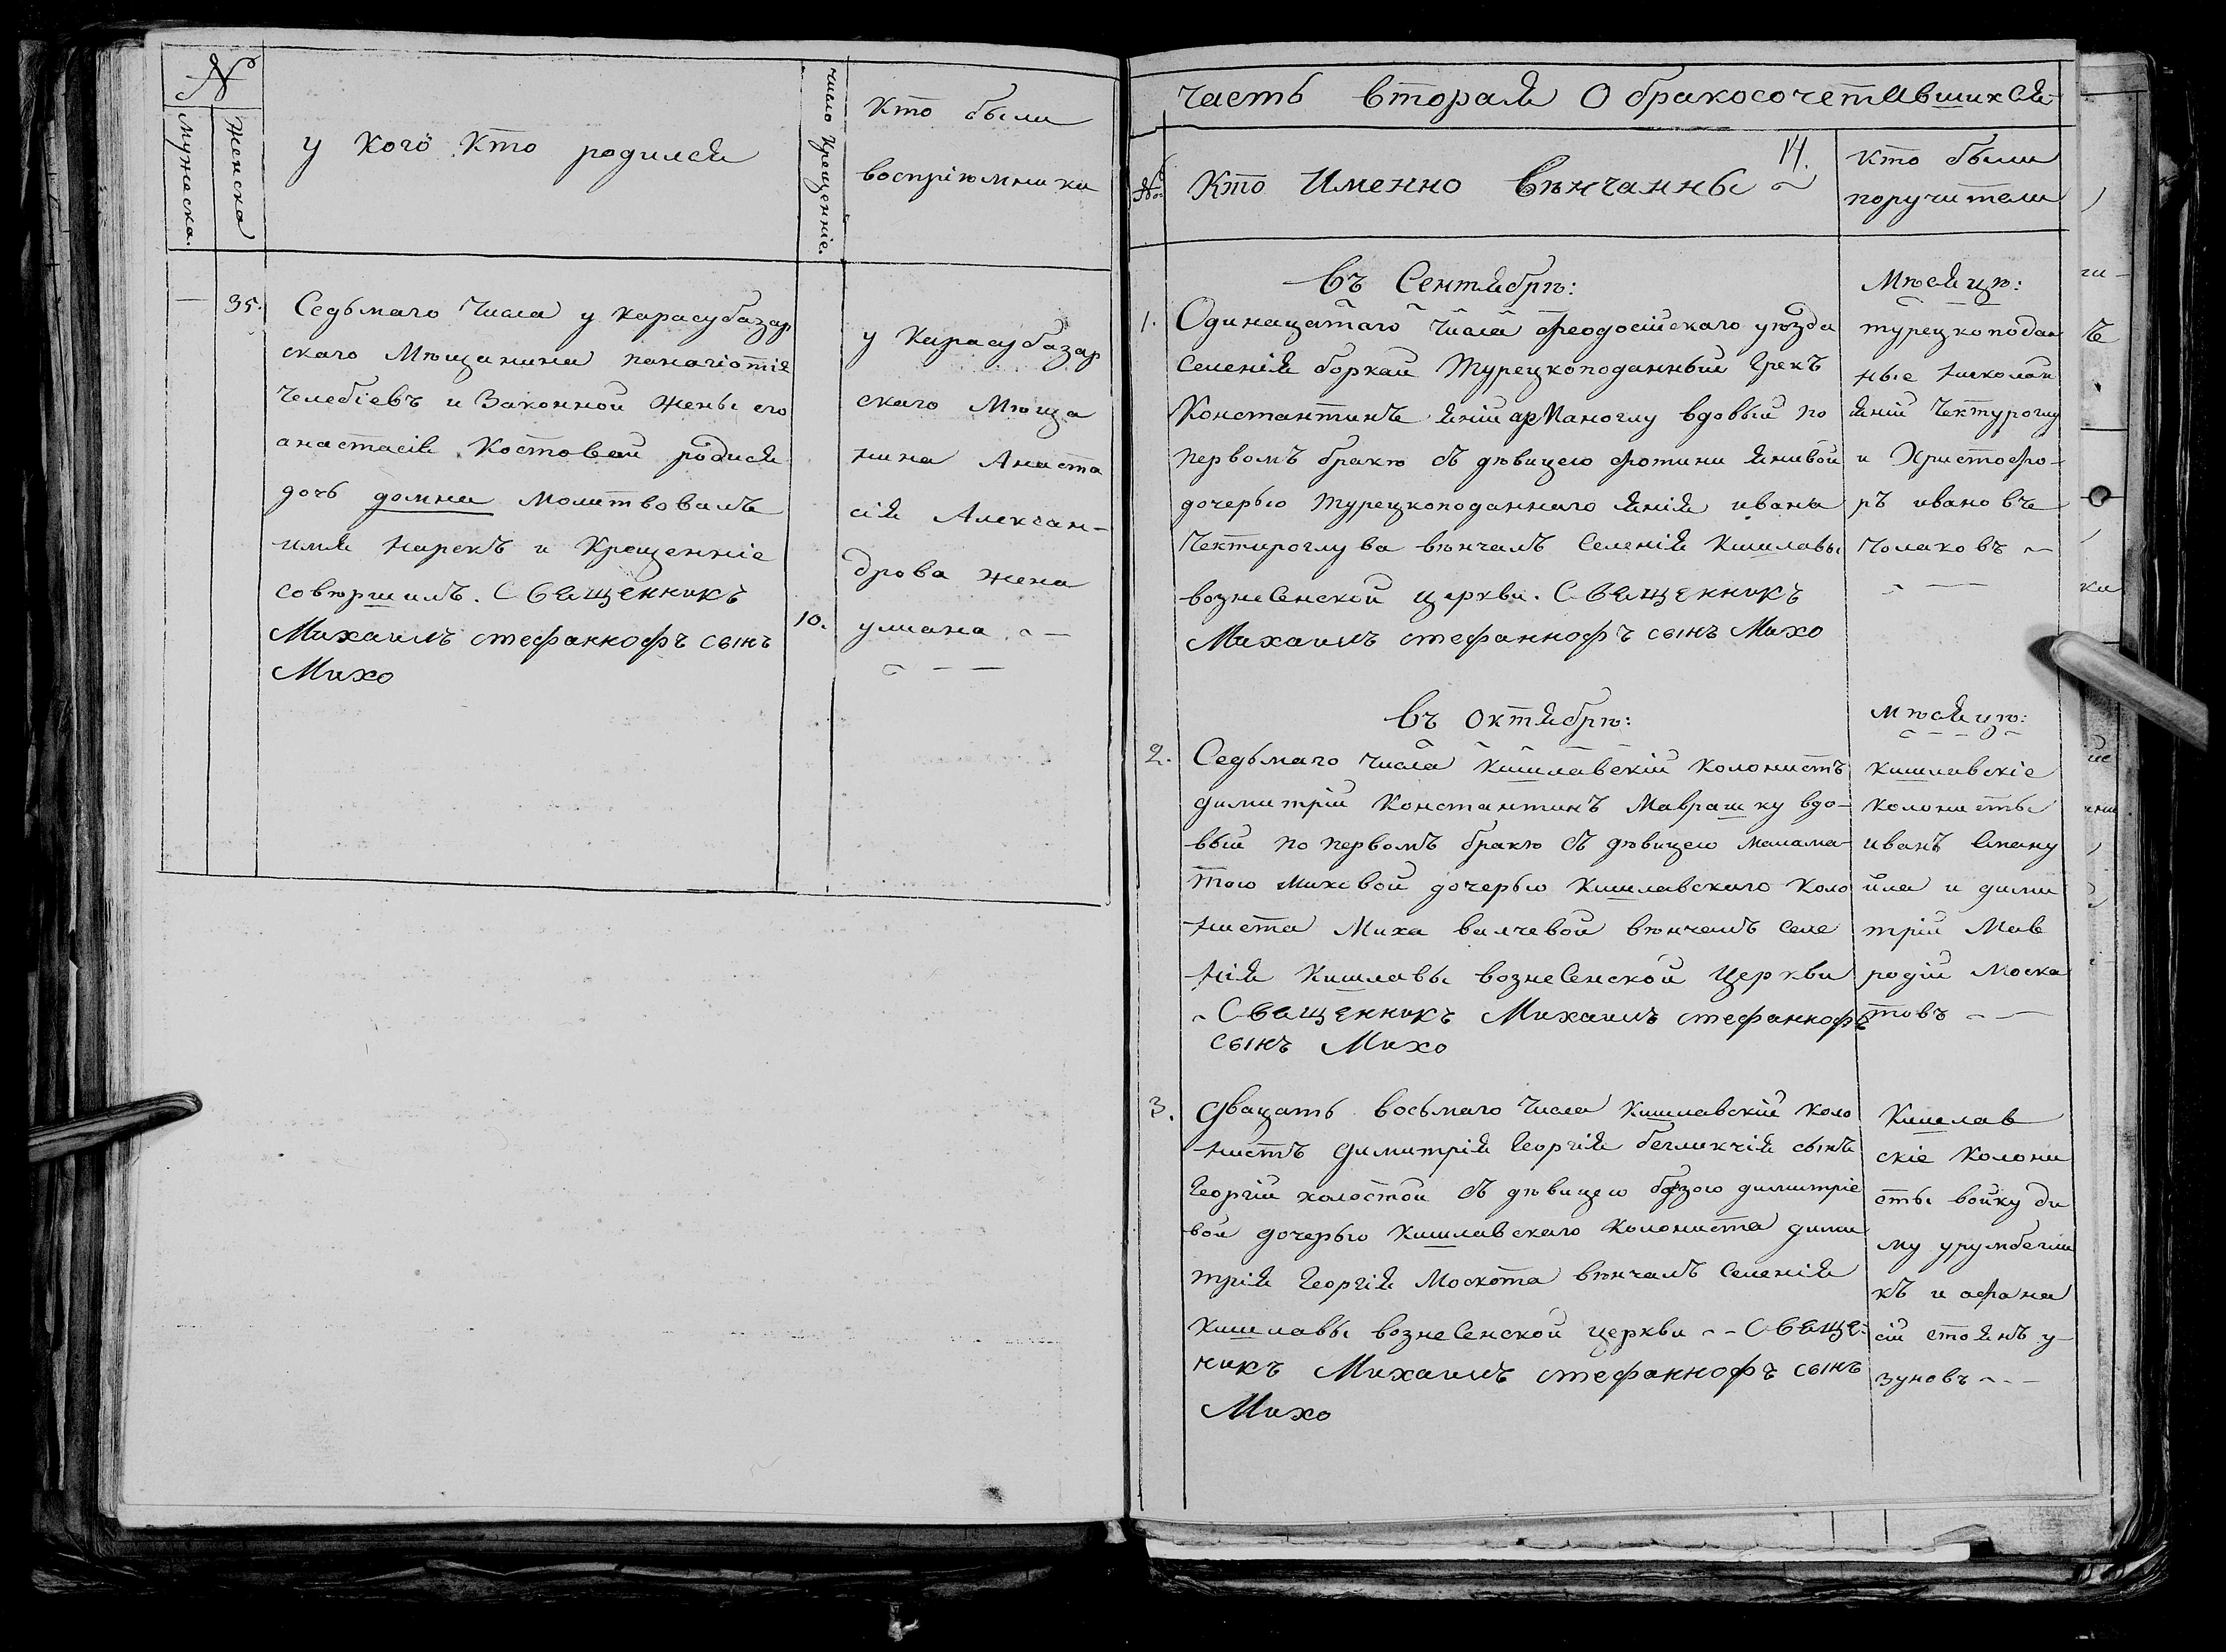 №
Мужеска.
Женска
у кого кто родился
число крещенніе.
кто были
воспріюмники
35.
Седьмаго числа у карасубазар
скаго Мющанина панагіотія
Челебіевъ и Законной жены его
анастасіи Костовой родися
дочь домна молитвовалъ
имя нарекъ и Крещенніе
совюршилъ. Священникъ
Михаилъ стефанкофъ сынъ
Михо
10.
у Карасубазар
скаго Мюща
нина Анаста
сія Алексан-
дрова жена
улиана
часть вторая О бракосочетавшихся
№
Кто Именно вѣнчанны
14.
кто были
поручители
въ Сентябрѣ:
Мѣсяцѣ:
1.
Одинацатаго числа феодосійскаго уѣзда
селенія боркай Турецкоподанный Грекъ
Константинъ яній арманоглу вдовый по
первомъ бракѣ съ дѣвицею фотини янивой
дочерью турецкоподаннаго янія ивана
Чектироглува вѣнчалъ селенія Кишлавы
вознесенской церкви. Священникъ
Михаилъ стефанкофъ сынъ Михо
турецкоподан
ные николай
яній Чектуроглу
и Христофо-
ръ ивановъ
Чолаковъ
въ октябрѣ:
мѣсяцѣ:
2.
Седьмаго числа Кишлавскій колонистъ
димитрій Константинъ Маврашку вдо-
вый по первомъ бракѣ съ дѣвицею малама-
тою Миховой дочерью Кишлавскаго коло
ниста Миха валчевой вѣнчалъ селе
нія Кишлавы вознесенской церкви
Священникъ Михаилъ стефанкофъ
сынъ Михо
кишлавскіе
колонисты
иванъ Спану
ила и дими
трій Мав
родій Моска
товъ
3.
Двацать восьмаго числа кишлавскій коло
нистъ Димитрія Георгія бегликчія сынъ
Георгій холостой съ дѣвицею бозою димитріе
вой дочерью Кишлавскаго колониста дими
трія Георгія Москота вѣнчалъ селенія
Кишлавы вознесенской церкви Свяще-
никъ Михаилъ стефанкофъ сынъ
Михо
Кишлав
скіе Колони
сты войку ди
му урумбегли
къ и афана
сій стоянъ у-
зуновъ